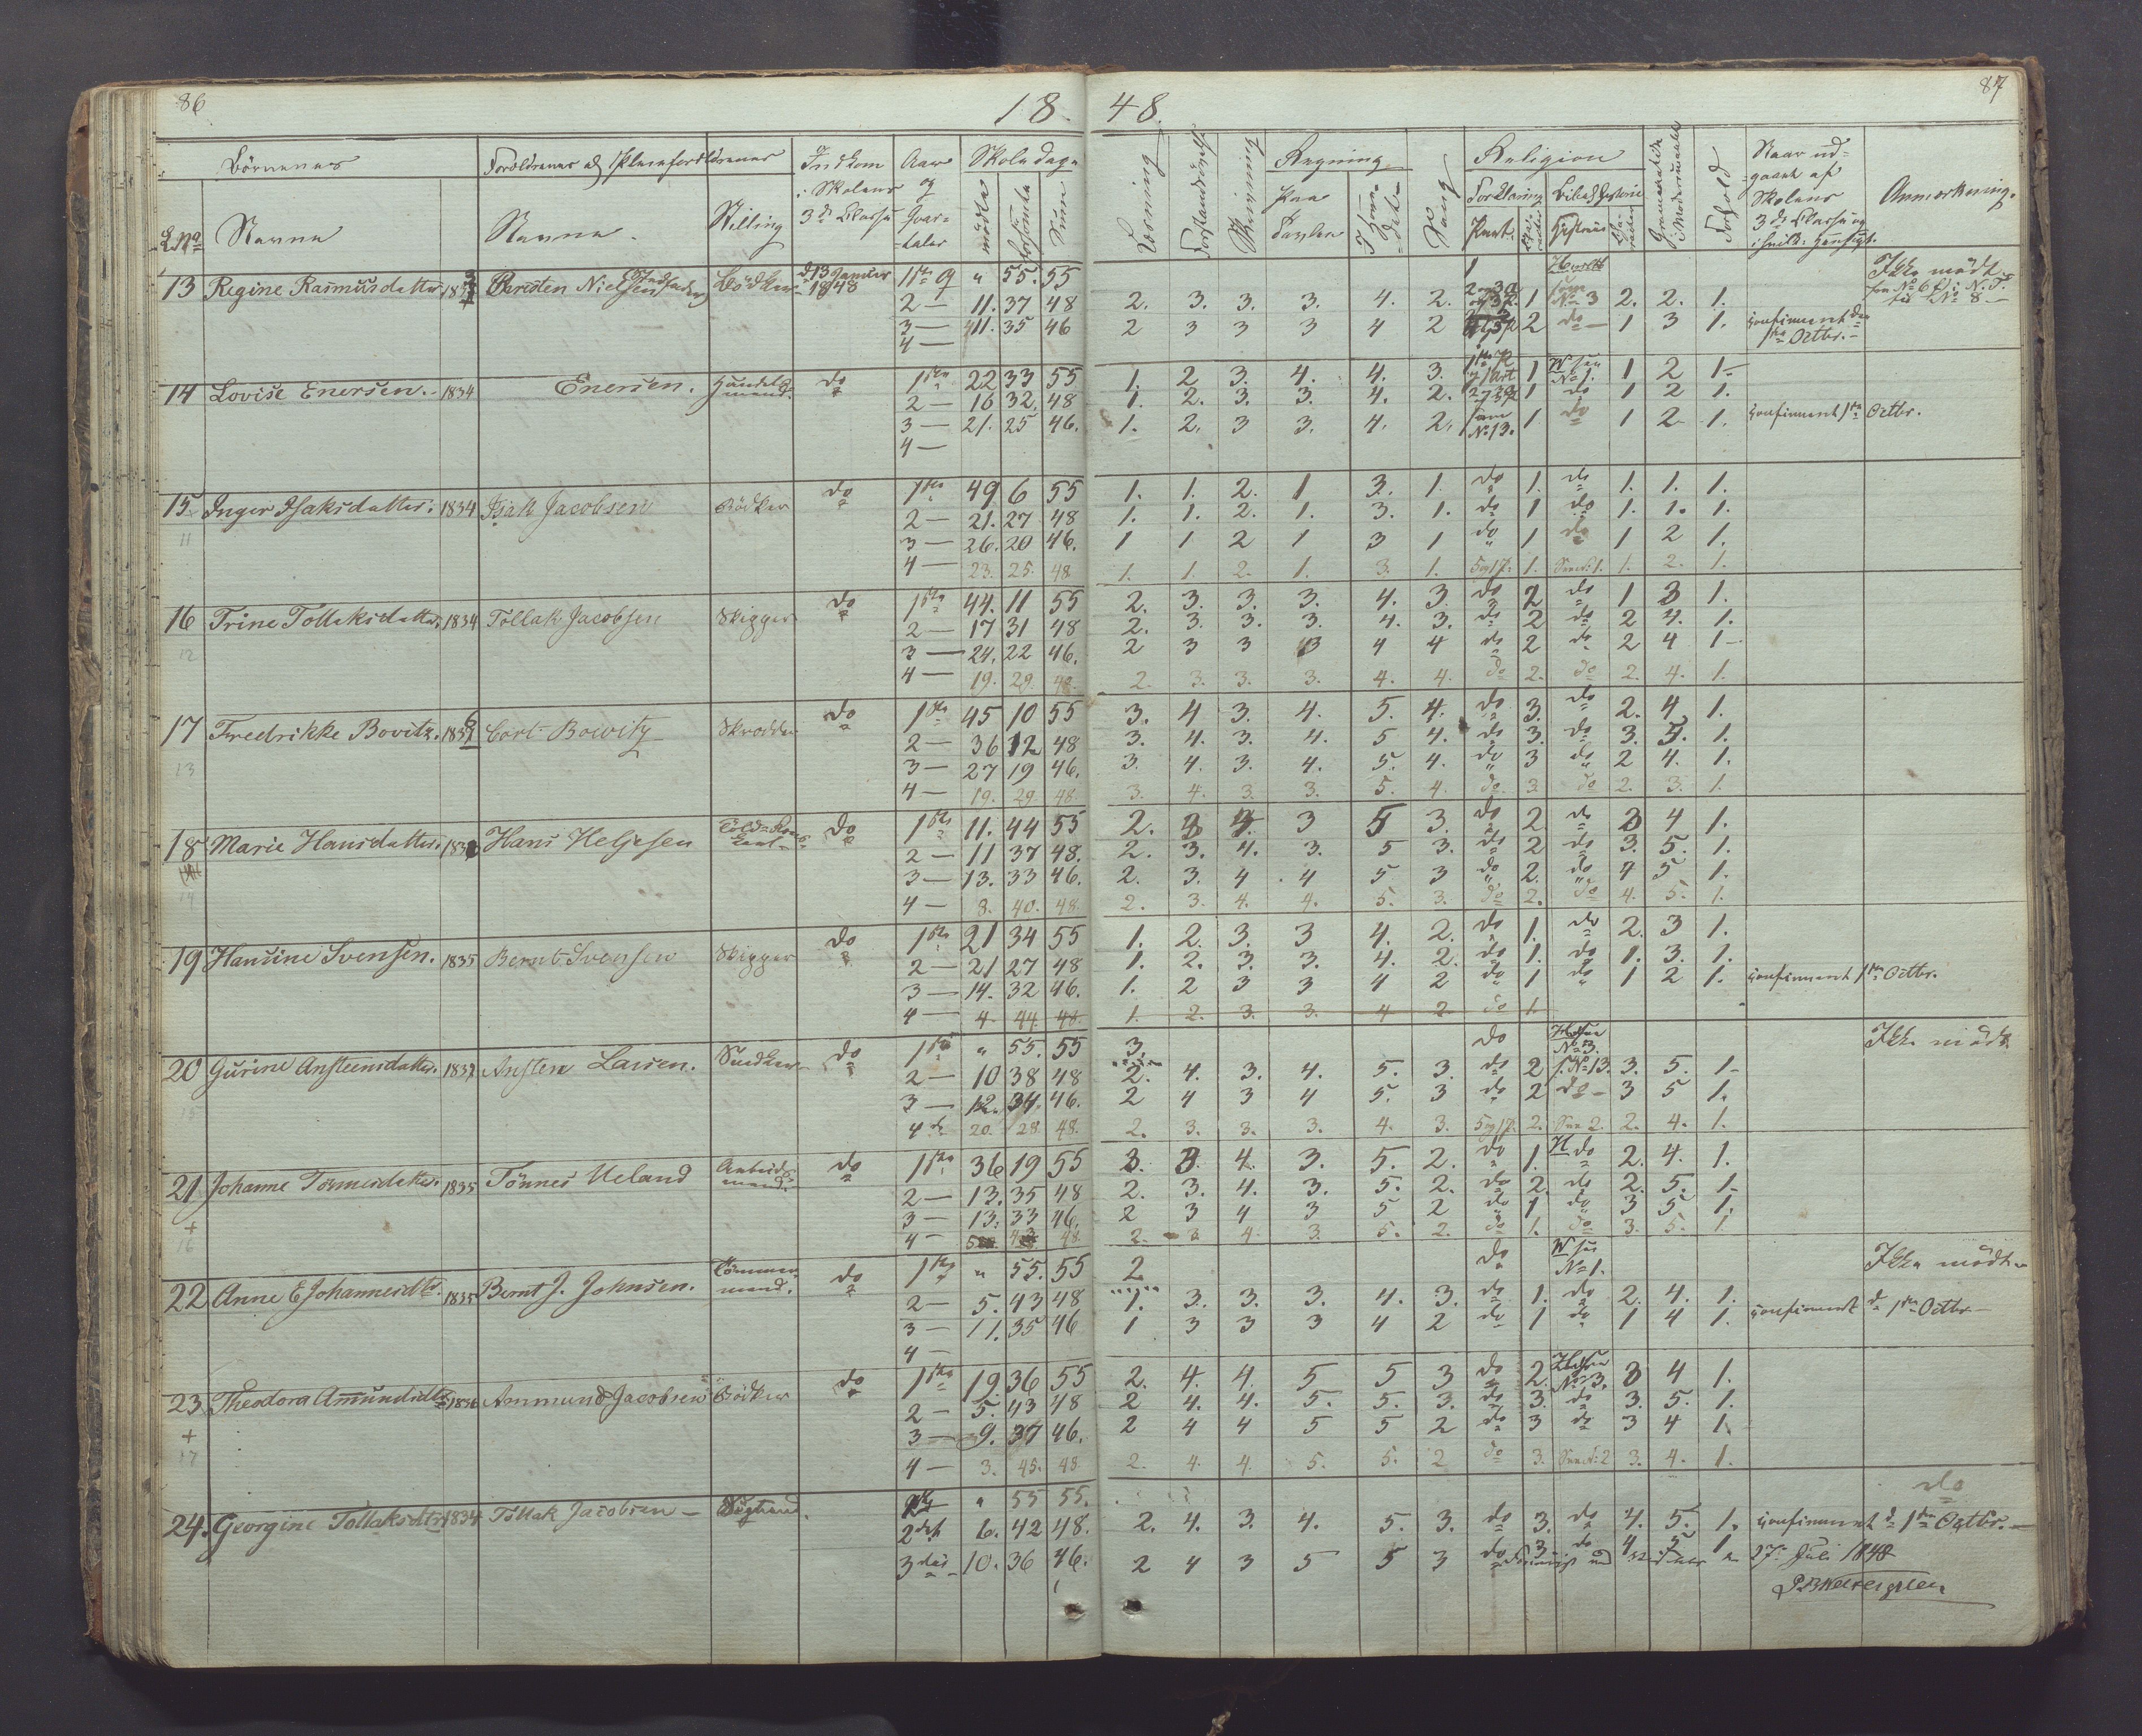 86
18
48.
87
Børnenes
Navne
Navne
Stilling
Indkom i Skolens 3die Classe
Aar og Qvartaler
Skoledage
mødte
forsømte
Sum
Læsning
Forstandsøvelse
Skrivning
Regning
Paa Tavlen
I Hovedet
Sang
Religion
Forklaring
Bibelhistorie
Forhold
Naar udgaaet af Skolens 3die Classe og
Anmærkning.
13 Regine Rasmusdatter Bødker d. 13 Januar 1848 1ste Q " 55. 55 Ikke mødt
2 — 11. 37 48 2. 3. 3. 3. 4. 2. 1 No 3 2. 2. 1.
3 — 11. 35 46 2 3 3 3 4 2 2 do 1 3 1. confirmeret den 1ste Octbr.
4 —
14 Lovise Enersen. 1834 Enersen. Handelsmand. do 1ste 22 33 55 1. 2 3. 4. 4. 3. 1 No 1. 1 2 1
2 — 16 32. 48 1. 2. 3. 3. 4. 2. 1 do 1 2 1.
3 — 21. 25 46. 1. 2. 3 3. 4. 2. som No 13. 1 do 1 2 1. confirmeret 1ste Octbr.
4 —
15 Inger Isaksdatter. 1834 Isak Jacobsen Bødker do 1ste 49 6 55 1. 1. 2. 1 3. 1. do 1. do 1. 1. 1.
11 2 — 21. 27 48 1. 1. 2. 1. 3. 1. do 1 do 1. 1. 1.
3 — 26. 20 46. 1 1 2 1 3 1 do 1 do 1 2 1.
4 — 23. 25. 48. 1. 1. 2. 1. 3. 1. 1. 1. 2. 1.
16 Trine Tollaksdatter. 1834 Tollak Jacobsen Skipper do 1ste 44. 11 55 2. 3. 3. 3. 4. 3. do 2 do 1 3 1.
12 2 — 17 31 48 2. 3. 3. 3. 4. 3. do 2 do 2 4. 1.
3 — 24. 22 46. 2 3 3 3 4 4 do 2 do 2 4 1
4 — 19. 29. 48. 2. 3. 3. 3. 4. 4. do 2. do 2. 4. 1.
17 Fredrikke Bovitz. Cort Bowitz Skrædder do 1ste 45 10 55 3. 4 3. 4. 5. 4. do 3. do 2. 4 1.
13 2 — 36 12 48 3. 4. 3. 4. 5 4. do 3. do 3. 5. 1.
3 — 27 19 46. 3. 4. 3. 4. 5. 4. do 3 do 2 4. 1.
4 — 19. 29. 48. 3. 4. 3. 3. 5. 4. do 3 do 2. 3. 1.
18 Marie Hansdatter. Hans Heljesen do 1ste 11. 44 55 2. 3 4. 3 5 3. do 2 do 3 4 1.
14 2 — 11 37 48. 2. 3. 4. 3. 5 3. do 2 do 3. 5. 1.
3 — 13. 33 46. 2. 3. 4 4 5 3 do 2. do 4 5 1.
4 — 8. 40. 48. 2. 3. 4. 4. 5. 3. do 2. do 4. 5. 1.
19 Hansine Svensen. 1835 Bernt Svensen Skipper do 1ste 21 34 55 1. 2. 3. 3 4. 2. do 1. do 2. 3 1.
2 — 21 27 48 1. 2. 3. 3. 4. 2. do 1. do 1. 3. 1.
3 — 14. 32 46. 1. 2 3 3 4 2 do 1 do 1 2 1. confirmeret 1ste Octbr.
4 — 4. 44. 48. 1. 2. 3. 3. 4 2 do 1.
20 Gurine Anstensdatter. Ansten Larsen. Snedker do 1ste " 55. 55 3. do No 3 Ikke mødt
2 — 10 38 48 2. 4. 3. 4. 5. 3. do 2 No 13. 3. 5. 1
3 — 12. 34. 46. 2 4 3 4 5. 3 do 2 do 3 5 1.
4 20. 28. 48. 2. 3. 3. 3. 4. 3. 2. 2. 4. 1.
21 Johanne Tønnesdatter. 1835 Tönnes Ueland Arbeidsmand. do 1ste 36 19 55 3. 3. 4. 3. 5. 2. do 1. do 2. 4. 1.
16 2 — 13. 35 48 2. 3. 4. 3. 5. 2. do 2. do 2. 5. 1
3 — 13. 33 46. 2 3 4 3 5 2 do 1 do 3 5 1.
4 — 48. 2. 3 4. 3. 5. 2. do 1. do 3. 5. 1.
22 Anne E Johannesdtr. 1835 Bernt J. Johnsen. Tømmermand. do 1ste " 55. 55 2 do No 1. Ikke mødt
2 — 5. 43 48 1. 3. 3. 3. 4. 3. do 1. do 2. 4. 1.
3 — 11. 35 46 1 3 3 3 4 2 do 1 do 1 4 1. confirmeret d 1ste Octbr.
4 —
23 Theodora Amundsdtr 1836 Ammund Jacobsen Bødker do 1ste 19. 36 55 2. 4. 4. 5 5 3 do 2. No 3. 3 4 1.
17 2 — 5. 43 48 2 4. 4. 5. 5. 3. do 3. do 3. 5. 1.
3 — 9. 37 46. 2 4 4 5 5 2 do 3 do 3 4 1.
4 — 3. 45. 48. 2. 4. 4. 5. 5. 2 do 3. 3. 4. 1.
24. Georgine Tollaksdtr 1834 Tollak Jacobsen " 55 55. do
2det 6. 42 48. 2. 4. 3. 4. 5. 3. do 3. do 4. 5. 1. confirmeret d 1ste Octbr.
3die 10. 36 46. 2 4 3 5 5 3 do 3 do 4 5 1 27. Juli 1848